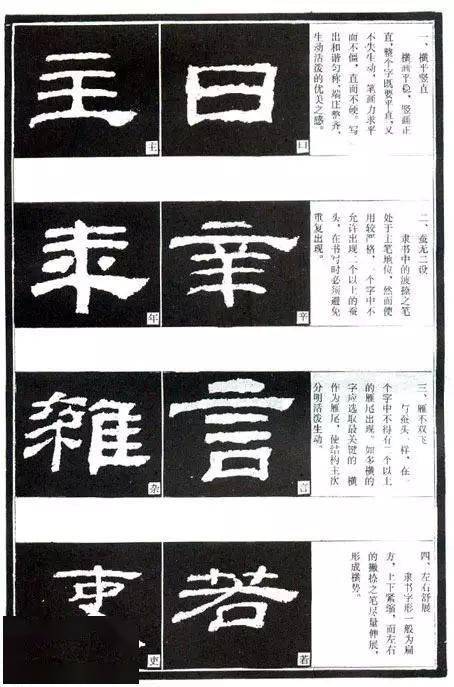 一、横平竖直
横画平稳，竖画正
直，整个字既要平直，又
不失生动，笔画力求平
而不僵，直而不硬。写
出和谐匀称，端庄整齐，
生动活泼的优美之感。
曰
曰
主
主
二、蚕无二设
隶书中的波捺之笔
处于主笔地位，然而使
用较严格，一个字中不
允许出现二个以上的蚕
头，在书写时必须避免
重复出现。
辛
辛
年
年
三、雁不双飞
与蚕头一样，在一
个字中不得有二个以上
的雁尾出现。如多横的
字应选取最关键的一横
作为雁尾，使结构主次
分明活泼生动。
言
言
雜
杂
四、左右舒展
隶书字形一般为扁
方，上下紧缩，而左右
的撇捺之笔尽量伸展，
形成横势。
若
若
吏
吏